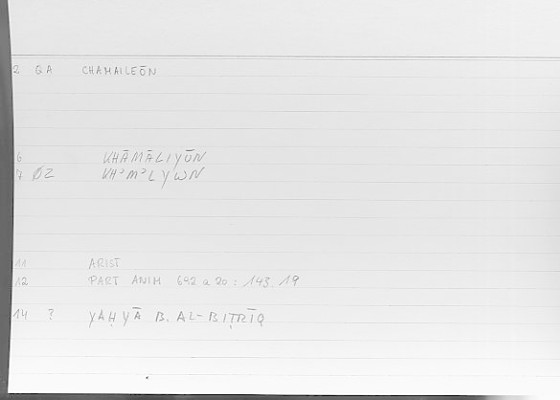 2 QA CHAMAILEŌN
6 KHĀMĀLIYŪN
7 ØZ KHʾMʾLYWN
11 ARIST
12 PART ANIM 692 a 20 : 143.19
14 ? YAḤYĀ B. AL-BIṬRĪQ